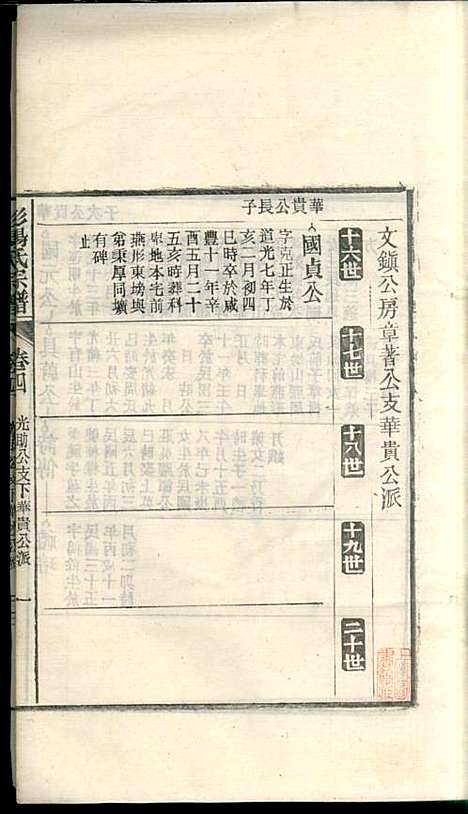 文鎭公房章著公支華貴公派
十六世
十七世
十八世
十九世
二十世
華貴公長子
國貞公
字克正生於
道光七年丁
亥二月初四
巳時卒於咸
豐十一年辛
酉五月二十
五亥時葬科
卑地本宅前
燕形東塝與
弟秉厚同壙
有碑
止
氏宗譜
卷四
光助公支下華貴公派